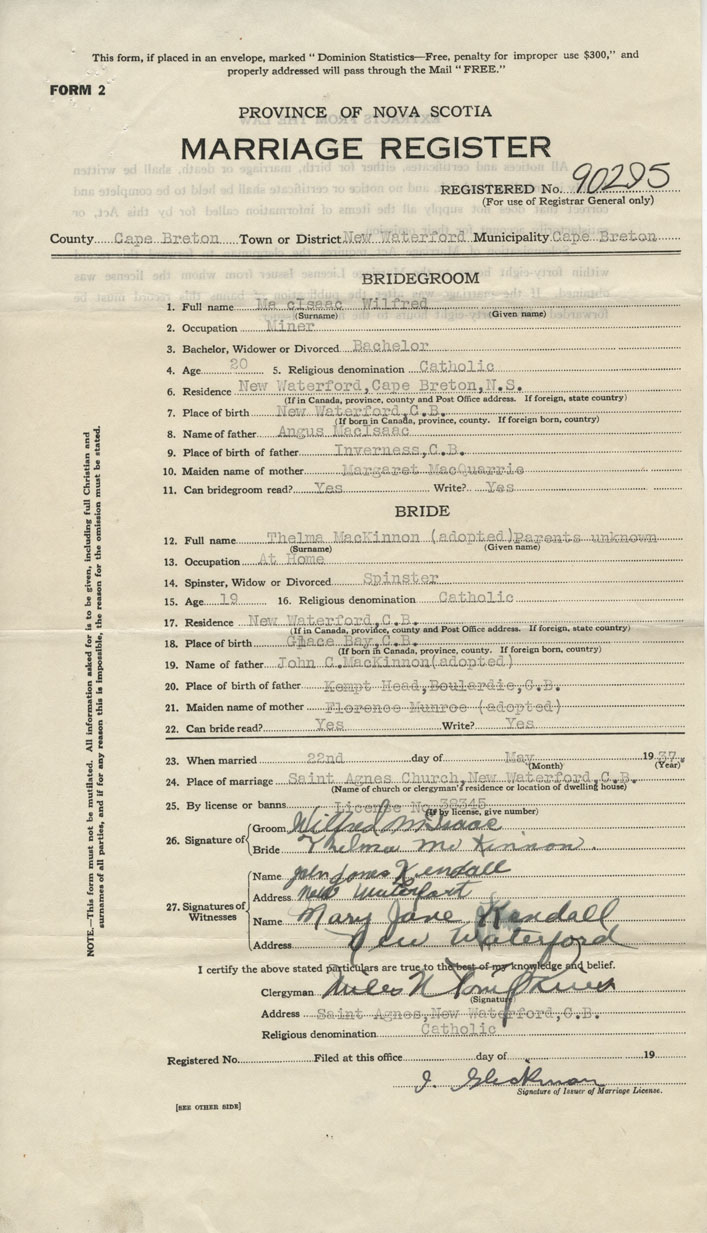 This form, if placed in an envelope, marked "Dominion Statistics—Free, penalty for improper use $300," and
properly addressed will pass through the Mail "FREE."
FORM 2
PROVINCE OF NOVA SCOTIA
MARRIAGE REGISTER
REGISTERED No. 90295
(For use of Registrar General only)
County Cape Breton Town or District New Waterford Municipality Cape Breton
BRIDEGROOM
1. Full name Ma cIsaac Wilfred
(Surname) (Given name)
2. Occupation Miner
3. Bachelor, Widower or Divorced Bachelor
4. Age 20 5. Religious denomination Catholic
6. Residence New Waterford,Cape Breton,N.S.
(If in Canada, province, county and Post Office address. If foreign, state country)
7. Place of birth New Waterford,C.B.
(If born in Canada, province, county. If foreign born, country)
8. Name of father Angus MacIsaac
9. Place of birth of father Inverness,C.B.
10. Maiden name of mother Margaret MacQuarrie
11. Can bridegroom read? Yes Write? Yes
BRIDE
12. Full name Thelma MacKinnon (adopted)Parents unknown
(Surname) (Given name)
13. Occupation At Home
14. Spinster, Widow or Divorced Spinster
15. Age 19 16. Religious denomination Catholic
17. Residence New Waterford,C.B.
(If in Canada, province, county and Post Office address. If foreign, state country)
18. Place of birth Glace Bay,C.B.
(If born in Canada, province, county. If foreign born, country)
19. Name of father John C.MacKinnon(adopted)
20. Place of birth of father Kempt Head,Boulardie,C.B.
21. Maiden name of mother Florence Munroe (adopted)
22. Can bride read? Yes Write? Yes
23. When married 22nd day of May 1937.
(Month) (Year)
24. Place of marriage Saint Agnes Church,New Waterford,C.B.
(Name of church or clergyman's residence or location of dwelling house)
25. By license or banns License No.
(If by license, give number)
26. Signature of
Groom Wilfred McIsaac
Bride Thelma McKinnon.
27. Signatures of Witnesses
Name John James Kendall
Address New Waterford
Name Mary Jane Kendall
Address New Waterford
I certify the above stated particulars are true to the best of my knowledge and belief.
Clergyman Miles N Tompkins
(Signature)
Address Saint Agnes,New Waterford,C.B.
Religious denomination Catholic
Registered No. Filed at this office day of 19
Signature of Issuer of Marriage License.
[SEE OTHER SIDE]
NOTE.—This form must not be mutilated. All information asked for is to be given, including full Christian and
surnames of all parties, and if for any reason this is impossible, the reason for the omission must be stated.